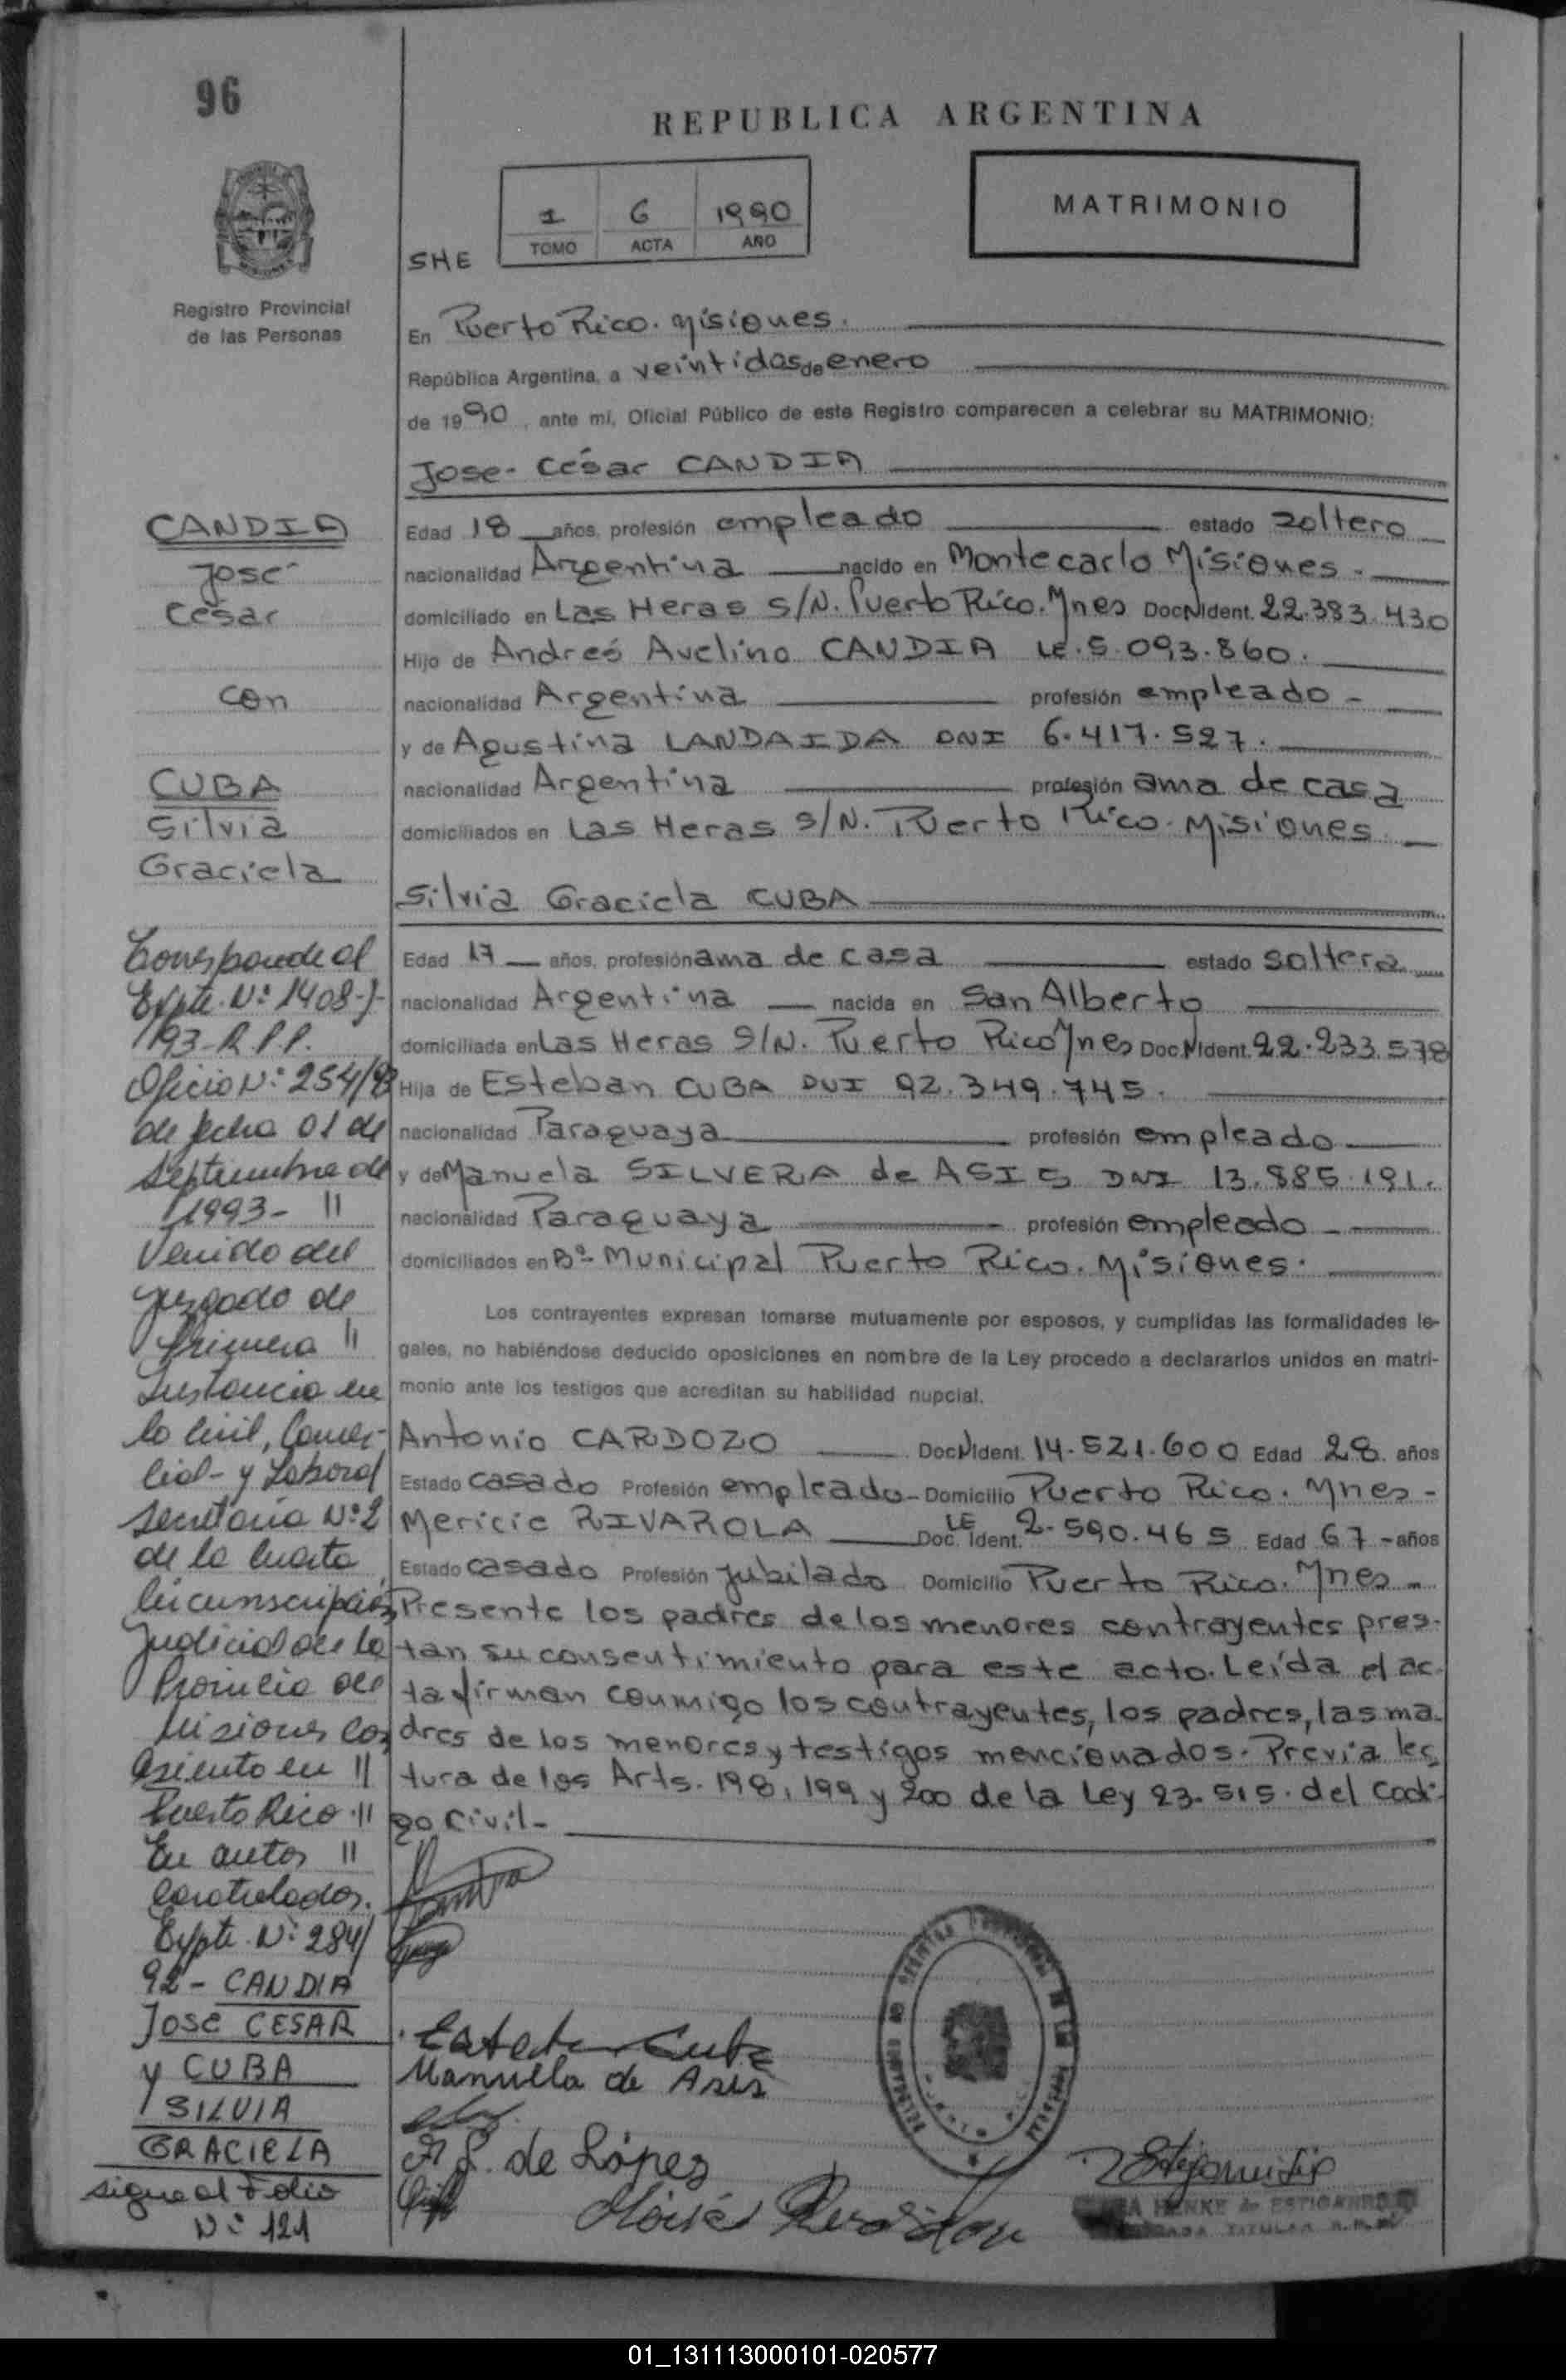 96
REPUBLICA ARGENTINA
1 6 1990
TOMO ACTA AÑO
MATRIMONIO
SHE
Registro Provincial
de las Personas
En Puerto Rico. Misiones.
República Argentina, a veintidos de enero
de 1990, ante mí, Oficial Público de este Registro comparecen a celebrar su MATRIMONIO:
Jose César CANDIA
Edad 18 años, profesión empleado estado soltero
nacionalidad Argentina nacido en Montecarlo Misiones.
domiciliado en Las Heras S/N. Puerto Rico. Mnes Doc N Ident. 22.383.430
Hijo de Andres Avelino CANDIA LE. 5.093.860.
nacionalidad Argentina profesión empleado -
y de Agustina LANDAIDA DNI 6.417.527.
nacionalidad Argentina profesión ama de casa
domiciliados en Las Heras S/N. Puerto Rico. Misiones.
Silvia Graciela CUBA
Edad 17 años, profesión ama de casa estado soltera
nacionalidad Argentina nacida en San Alberto
domiciliada en Las Heras S/N. Puerto Rico Mnes Doc N Ident. 22.233.578
Hija de Esteban CUBA DNI 92.349.745.
nacionalidad Paraguaya profesión empleado
y de Manuela SILVERA de ASIS DNI 13.885.191.
nacionalidad Paraguaya profesión empleado -
domiciliados en Bº Municipal Puerto Rico. Misiones.
Los contrayentes expresan tomarse mutuamente por esposos, y cumplidas las formalidades le-
gales, no habiéndose deducido oposiciones en nombre de la Ley procedo a declararlos unidos en matri-
monio ante los testigos que acreditan su habilidad nupcial.
Antonio CARDOZO Doc N Ident. 14.521.600 Edad 28 años
Estado casado Profesión empleado - Domicilio Puerto Rico. Mnes -
Mericie RIVAROLA Doc. LE Ident. 2.590.465 Edad 67 - años
Estado casado Profesión Jubilado Domicilio Puerto Rico. Mnes -
Presente los padres de los menores contrayentes pres-
tan su consentimiento para este acto. Leída el ac-
ta firman conmigo los contrayentes, los padres, las ma-
dres de los menores y testigos mencionados. Previa lec
tura de los Arts. 198, 199 y 200 de la Ley 23.515. del Codi-
go Civil -
CANDIA
José
César
con
CUBA
Silvia
Graciela
Corresponde al
Expte. Nº 1408-J-
/93-R.P.P.
Oficio Nº 254/93
de fecha 01 de
septiembre de
1993- //
Venido del
Juzgado de
Primera //
Instancia en
lo Civil, Comer-
cial- y Laboral
Secretaria Nº 2
de la Cuarta
Circunscripción
Judicial de la
Provincia de
Misiones con
asiento en //
Puerto Rico. //
En autos //
caratulados.
Expte. Nº 284/
92 - CANDIA
JOSE CESAR
y CUBA
SILVIA
GRACIELA
sigue al Folio
Nº 121
Esteban Cuba
Manuella de Asis
de López
01_131113000101-020577